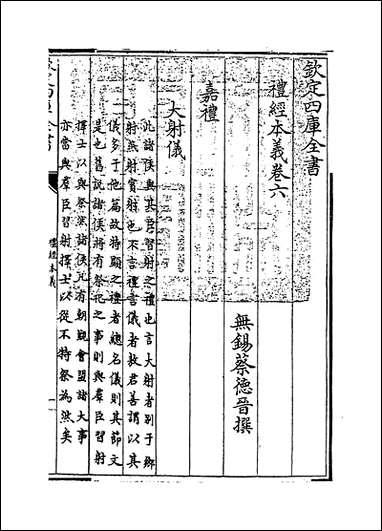 欽定四庫全書
禮經本義卷六
無錫蔡德晉撰
嘉禮
大射儀
此諸侯與其臣習射之禮也言大射者别于鄉
射燕射賓射也不言禮言儀者敖君善謂以其
儀多于他篇故特顯之禮者總名儀則其節文
是也舊説諸侯將有祭祀之事則與羣臣習射
擇士以與祭然諸侯凡有朝覲會盟諸大事
亦當與羣臣習射擇士以從不特祭為然矣
禮經本義